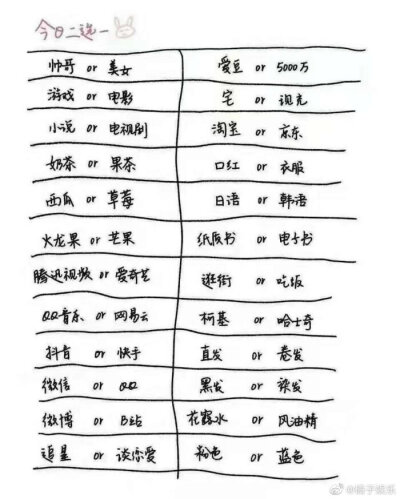 今日二选一
帅哥 or 美女
爱豆 or 5000万
游戏 or 电影
宅 or 现充
小说 or 电视剧
淘宝 or 京东
奶茶 or 果茶
口红 or 衣服
西瓜 or 草莓
日语 or 韩语
火龙果 or 芒果
纸质书 or 电子书
腾迅视频 or 爱奇艺
逛街 or 吃饭
QQ音乐 or 网易云
柯基 or 哈士奇
抖音 or 快手
直发 or 卷发
微信 or QQ
黑发 or 染发
微博 or B站
花露水 or 风油精
追星 or 谈恋爱
粉色 or 蓝色
@桔子娱乐